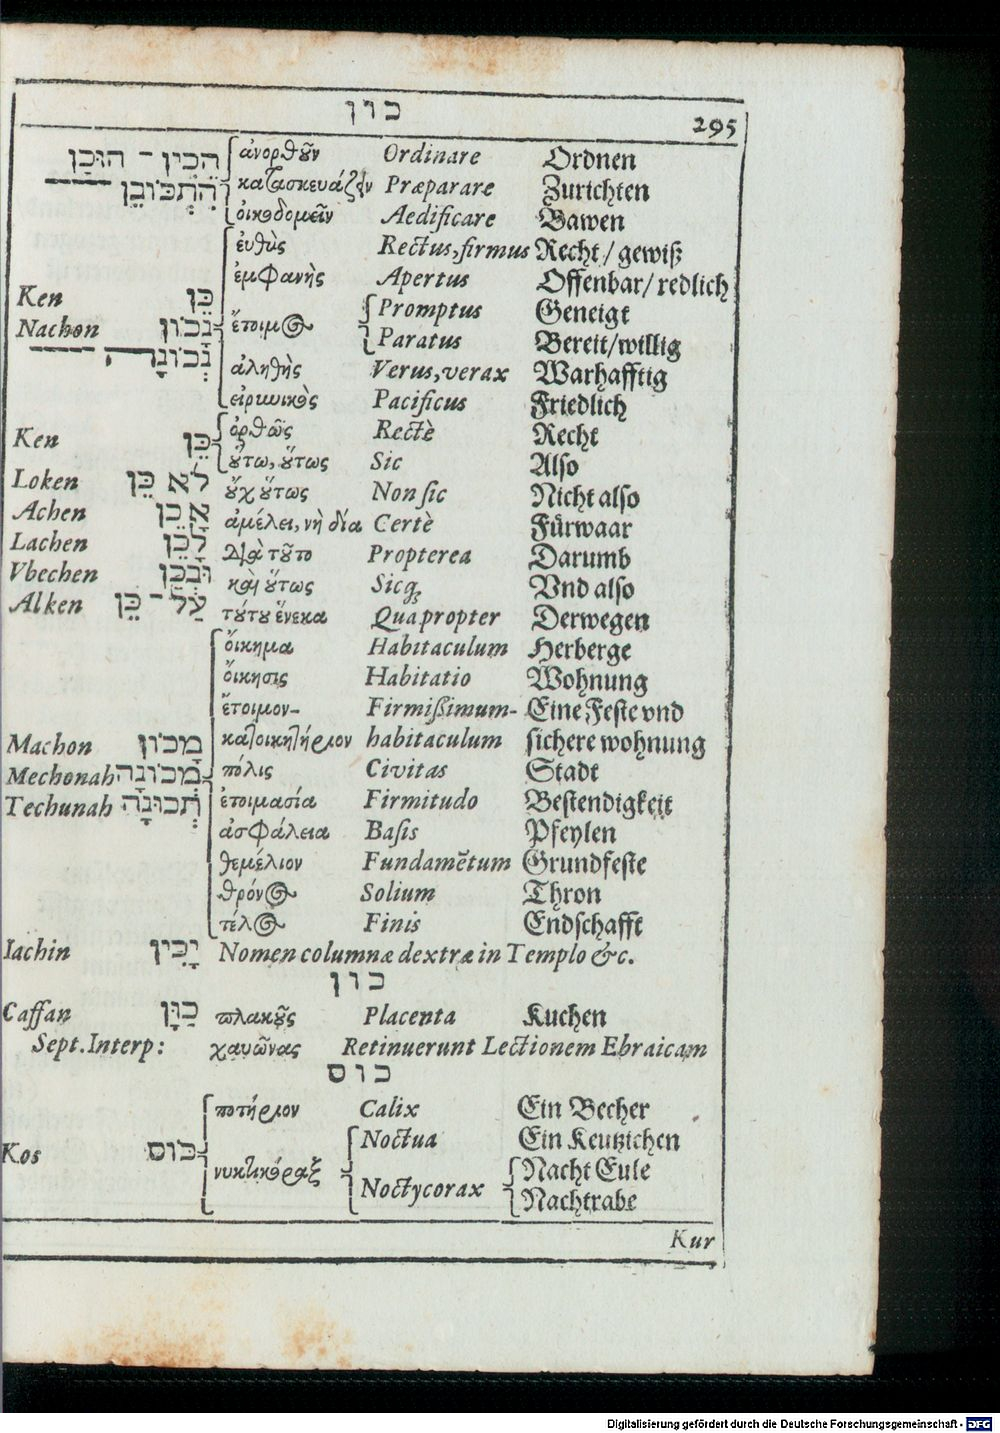 כון
295
הֵכִין - הוּכַן ἀνορθοῦν Ordinare Ordnen
הִתְכּוֹנֵן κατασκευάζειν Præparare Zurichten
οἰκοδομεῖν Aedificare Bawen
ἐυθὺς Rectus, firmus Recht / gewiß
ἐμφανὴς Apertus Offenbar / redlich
Ken כֵּן Promptus Geneigt
Nachon נָכוֹן ἕτοιμος Paratus Bereit / willig
נְכוֹנָה ἀληθὴς Verus, verax Warhafftig
εἰρηνικὸς Pacificus Friedlich
ὀρθῶς Rectè Recht
Ken כֵּן οὕτω, οὕτως Sic Also
Loken לֹא כֵּן οὔχ οὕτως Non sic Nicht also
Achen אָכֵן ἀμέλει, νὴ δία Certè Fürwaar
Lachen לָכֵן διὰ τοῦτο Propterea Darumb
Vbechen וּבְכֵן καὶ οὕτως Sicq; Vnd also
Alken עַל - כֵּן τούτου ἕνεκα Quapropter Derwegen
ὄικημα Habitaculum Herberge
ὄικησις Habitatio Wohnung
ἕτοιμον- Firmißimum- Eine Feste vnd
Machon מָכוֹן κατοικητήριον habitaculum sichere wohnung
Mechonah מְכוֹנָה πόλις Civitas Stadt
Techunah תְּכוּנָה ἑτοιμασία Firmitudo Bestendigkeit
ἀσφάλεια Basis Pfeylen
θεμέλιον Fundamētum Grundfeste
θρόνος Solium Thron
τέλος Finis Endschafft
Iachin יָכִין Nomen columnæ dextræ in Templo &c.
כון
Caffan כַּוָּן πλακοῦς Placenta Kuchen
Sept. Interp: χαυῶνας Retinuerunt Lectionem Ebraicam
כוס
ποτήριον Calix Ein Becher
Noctua Ein Keutzichen
Kos כּוֹס νυκτικόραξ Nacht Eule
Noctycorax Nachtrabe
Kur
Digitalisierung gefördert durch die Deutsche Forschungsgemeinschaft - DFG